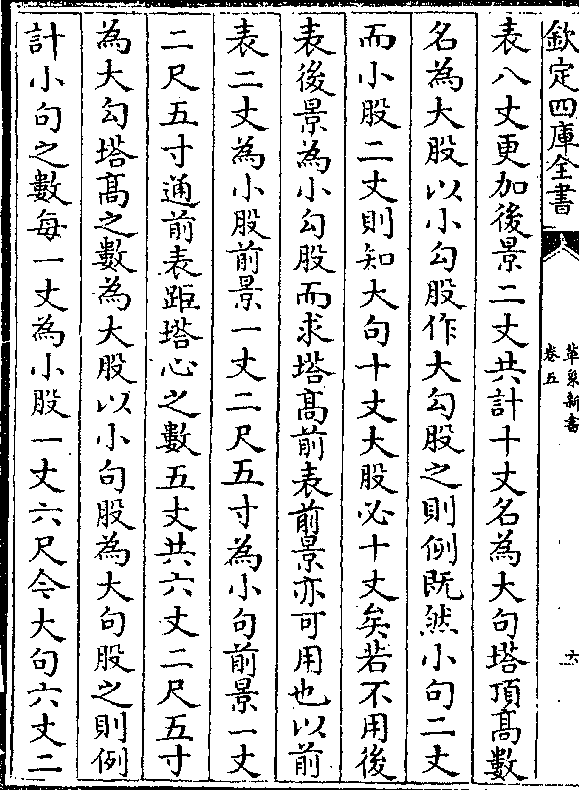 欽定四庫全書
革象新書
卷五
六
表八丈更加後景二丈共計十丈名為大句塔頂髙數
名為大股以小勾股作大勾股之則例既然小句二丈
而小股二丈則知大句十丈大股必十丈矣若不用後
表後景為小勾股而求塔髙前表前景亦可用也以前
表二丈為小股前景一丈二尺五寸為小句前景一丈
二尺五寸通前表距塔心之數五丈共六丈二尺五寸
為大勾塔髙之數為大股以小句股為大句股之則例
計小句之數每一丈為小股一丈六尺令大句六丈二